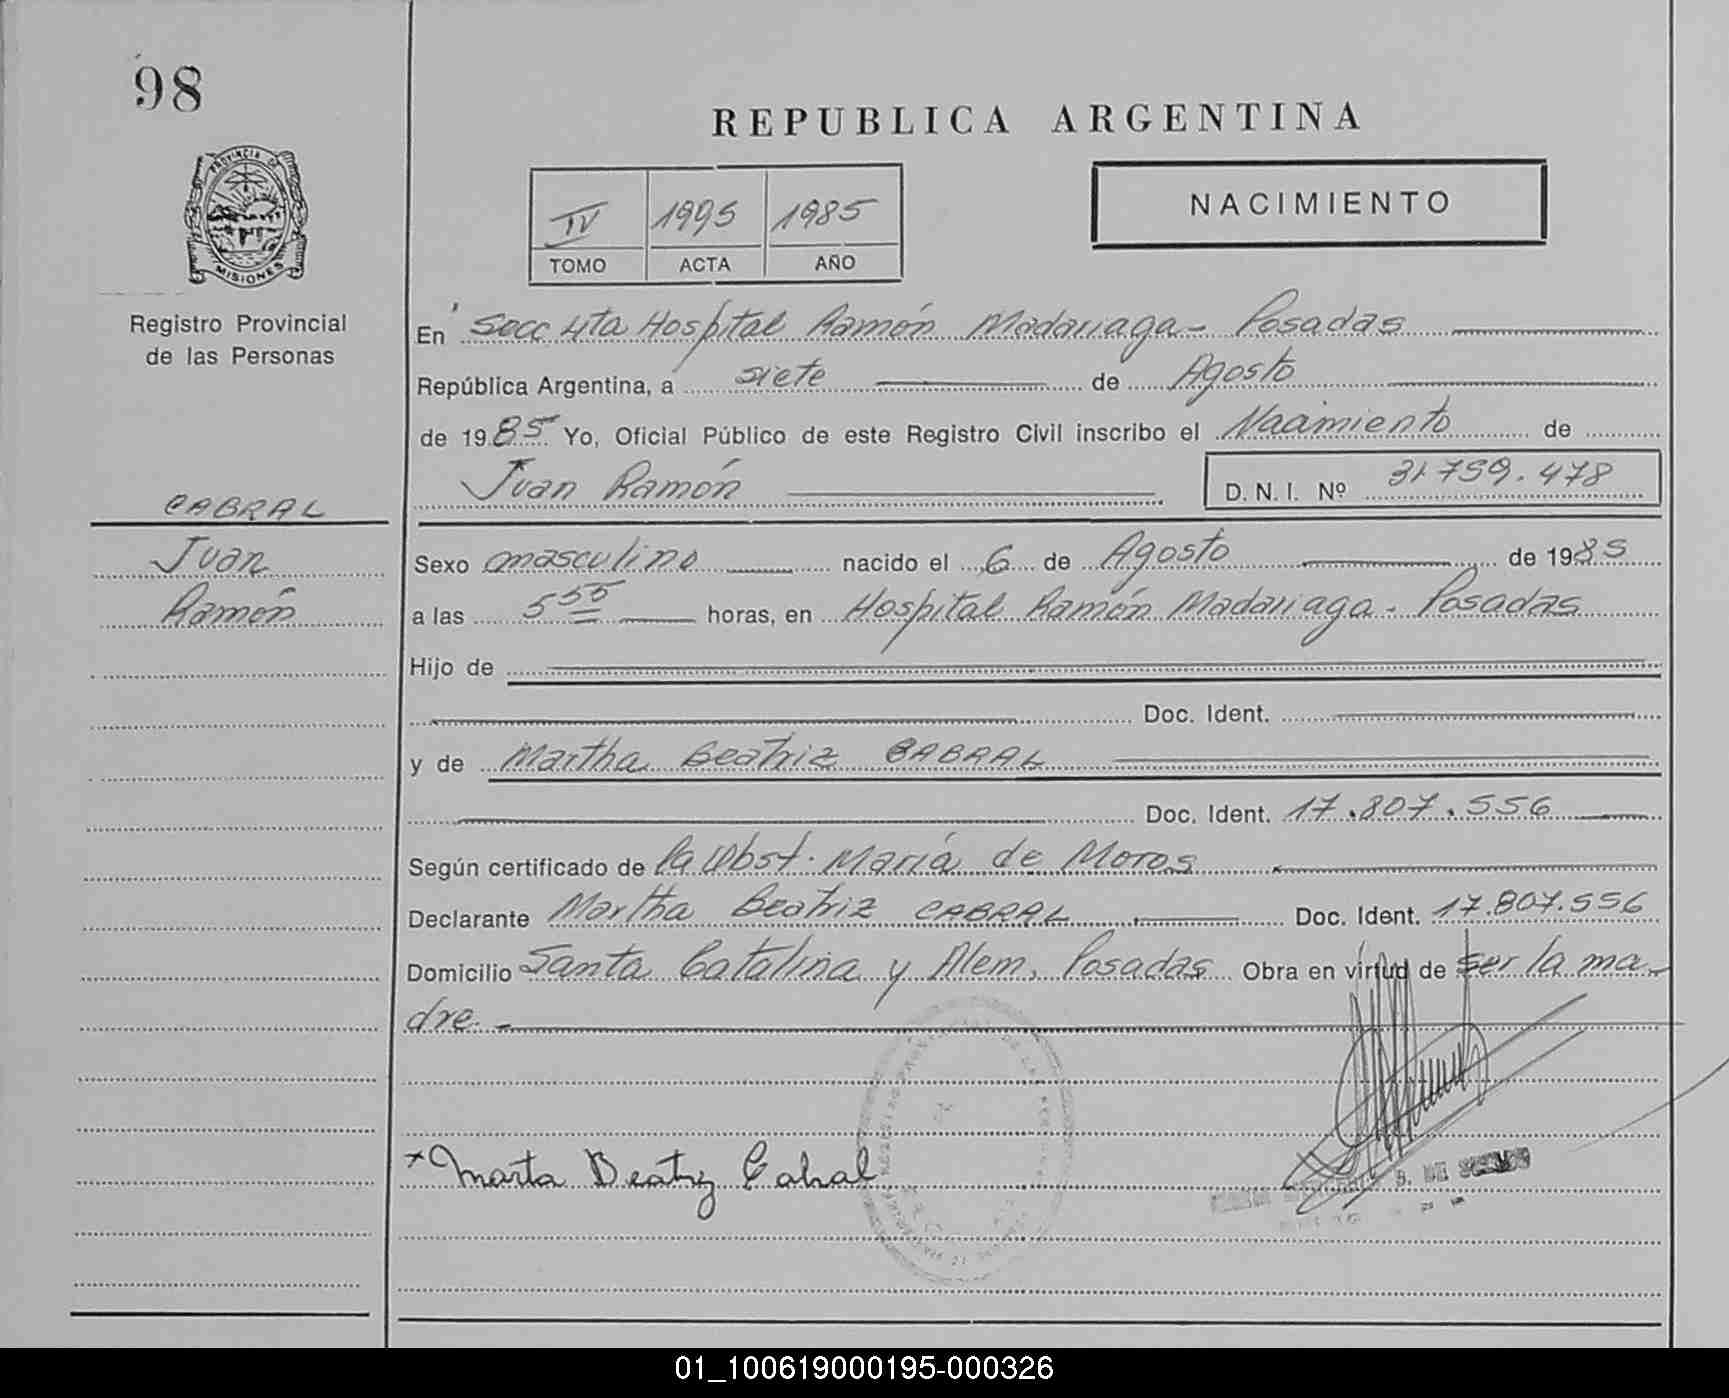 98
REPUBLICA ARGENTINA
PROVINCIA DE
MISIONES
IV 1995 1985
TOMO ACTA AÑO
NACIMIENTO
Registro Provincial
de las Personas
En Secc 4ta Hospital Ramón Madariaga - Posadas
República Argentina, a siete de Agosto
de 1985 Yo, Oficial Público de este Registro Civil inscribo el Nacimiento de
Juan Ramón
D. N. I. Nº 31.759.478
CABRAL
Juan
Ramón
Sexo masculino nacido el 6 de Agosto de 1985
a las 5 55 horas, en Hospital Ramón Madariaga - Posadas
Hijo de
Doc. Ident.
y de Martha Beatriz CABRAL
Doc. Ident. 17.807.556
Según certificado de la Obst. María de Moros
Declarante Martha Beatriz CABRAL Doc. Ident. 17.807.556
Domicilio Santa Catalina y Alem, Posadas Obra en virtud de ser la ma-
dre. -
Marta Beatriz Cabral
01_100619000195-000326